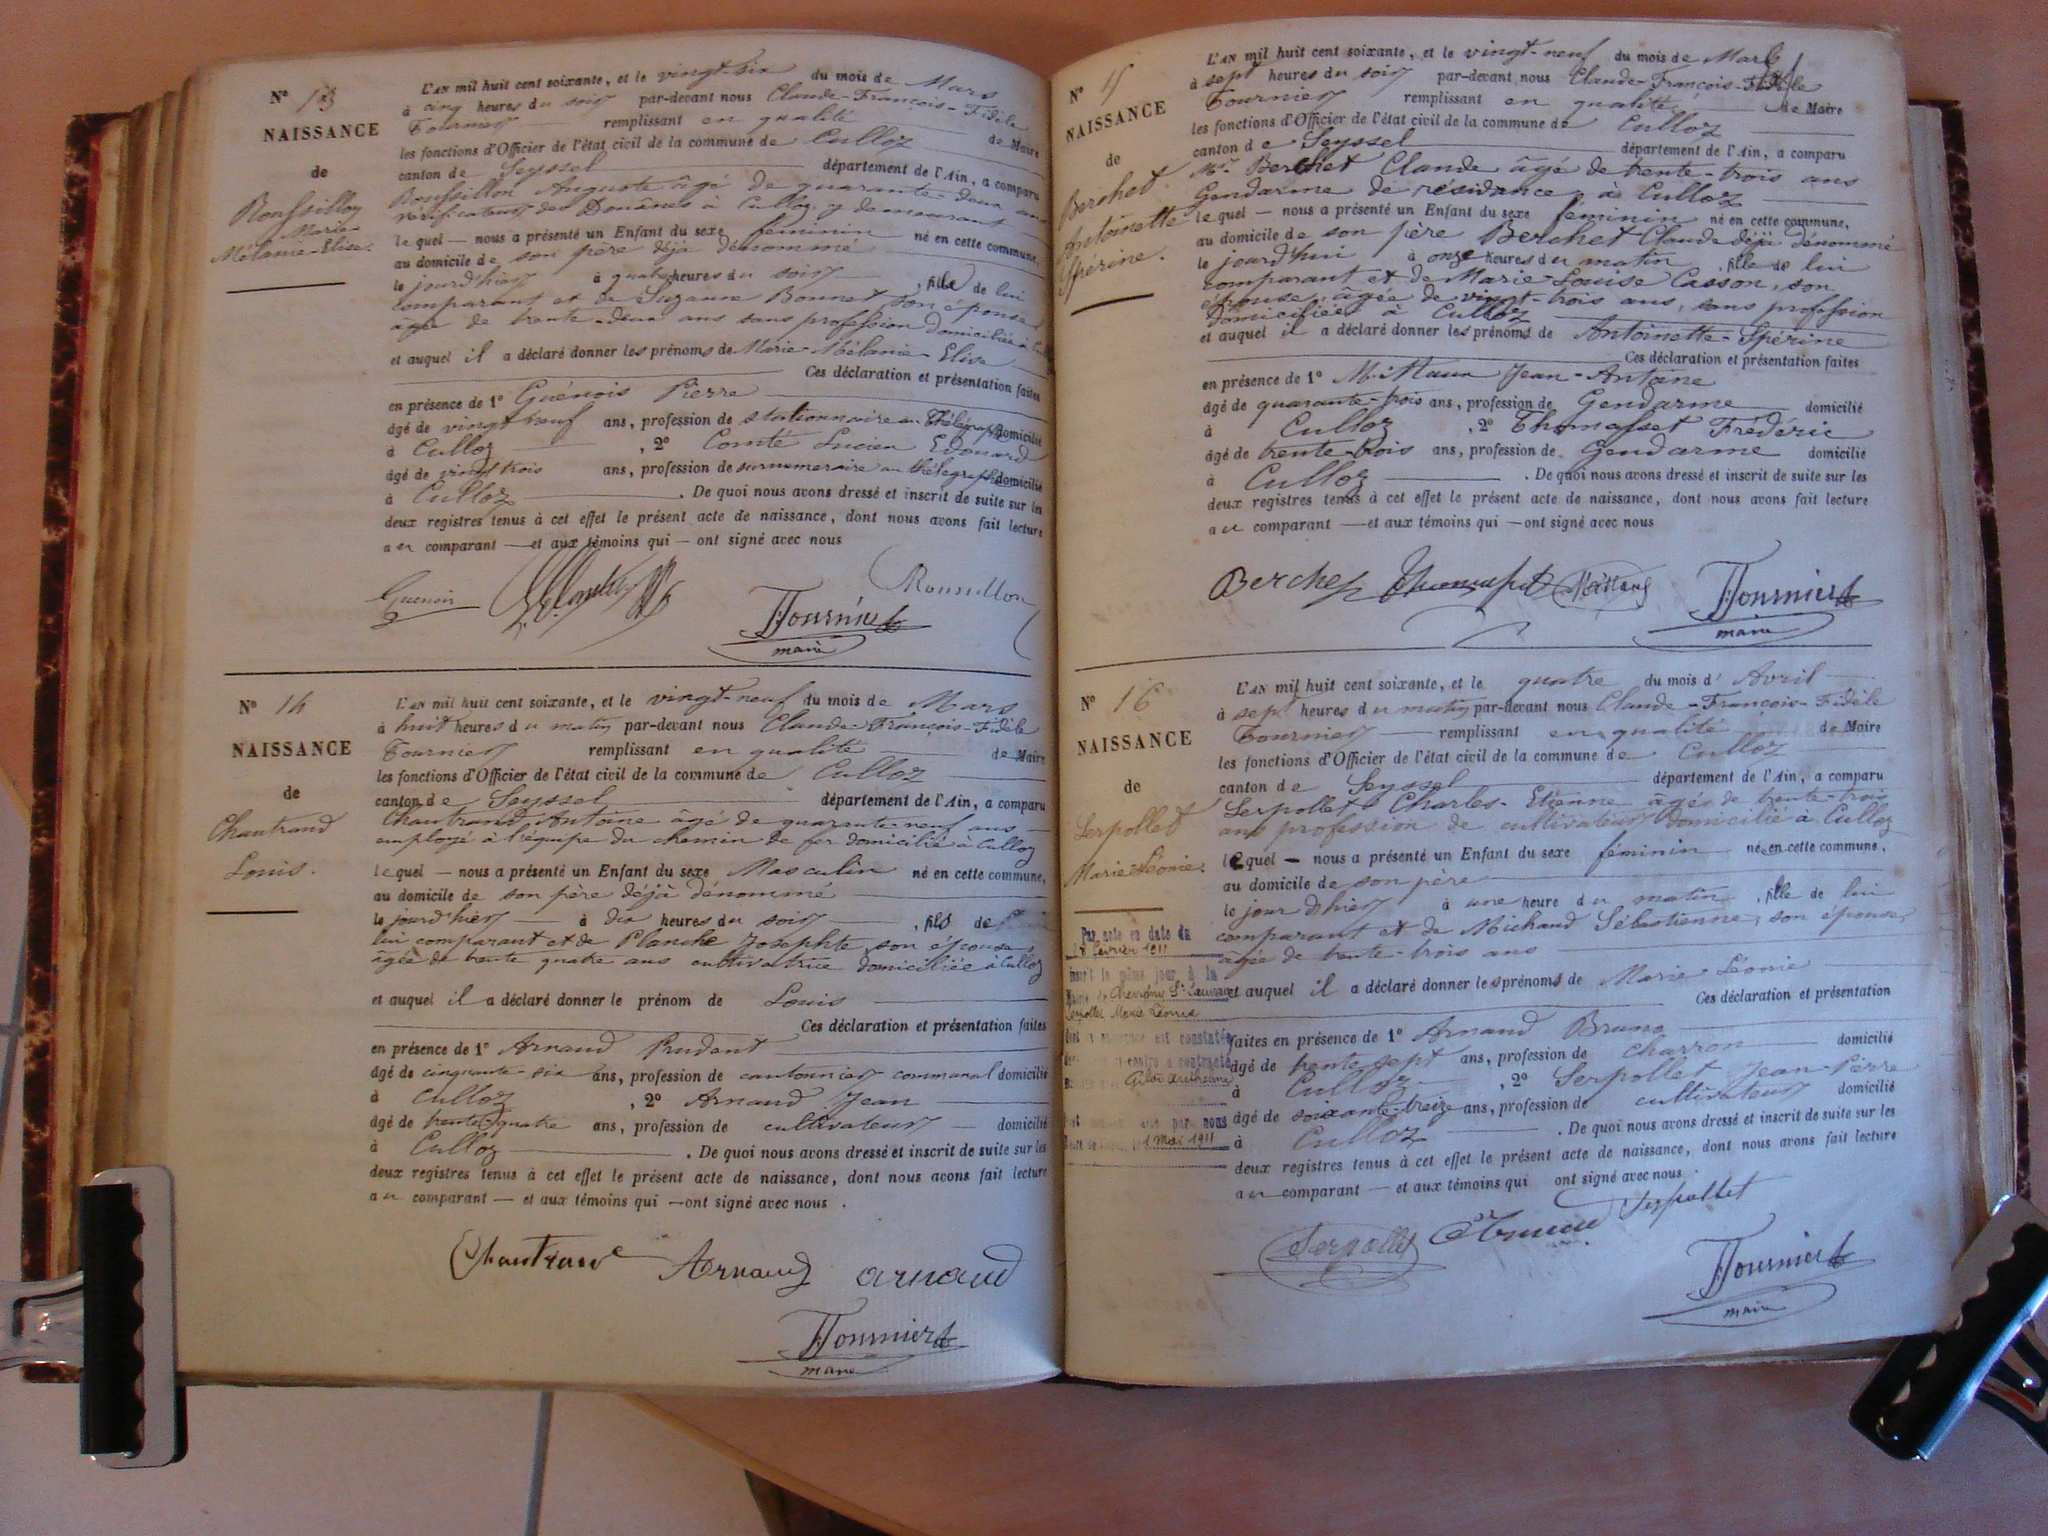 N° 13
NAISSANCE
de
Roussillon
Marie-
Mélanie-Elise.
L'AN mil huit cent soixante, et le vingt-six du mois de Mars
à cinq heures du soir par-devant nous Claude-François-Fidèle
Fournier remplissant en qualité de Maire
les fonctions d'Officier de l'état civil de la commune de Culloz
canton de Seyssel département de l'Ain, a comparu
Roussillon Auguste âgé de quarante-deux ans
vérificateur des Douânes à Culloz y demeurant
lequel — nous a présenté un Enfant du sexe féminin né en cette commune,
au domicile de son père déjà dénommé
le jourd'hier à quatre heures du soir, fille de lui
comparant et de Suzanne Bonnet son épouse
âgée de trente-deux ans sans profession domiciliée à Culloz
et auquel il a déclaré donner les prénoms de Marie-Mélanie-Elise
Ces déclaration et présentation faites
en présence de 1° Guénois Pierre
âgé de vingt neuf ans, profession de stationnaire au Thélégraphe domicilié
à Culloz, 2° Comté Lucien Edouard
âgé de vingt trois ans, profession de surnumeraire au thélégraphe domicilié
à Culloz. De quoi nous avons dressé et inscrit de suite sur les
deux registres tenus à cet effet le présent acte de naissance, dont nous avons fait lecture
au comparant — et aux témoins qui — ont signé avec nous
Guenois Roussillon
Fournier
maire
N° 14
NAISSANCE
de
Chautrand
Louis.
L'AN mil huit cent soixante, et le vingt-neuf du mois de Mars
à huit heures du matin par-devant nous Claude-François-Fidèle
Fournier remplissant en qualité de Maire
les fonctions d'Officier de l'état civil de la commune de Culloz
canton de Seyssel département de l'Ain, a comparu
Chautrand Antoine âgé de quarante-neuf ans
employé à l'équipe du chemin de fer domicilié à Culloz
lequel — nous a présenté un Enfant du sexe Masculin né en cette commune,
au domicile de son père déjà dénommé
le jourd'hier à dix heures du soir, fils de
lui comparant et de Planche Josephte son épouse,
âgée de trente quatre ans cultivatrice domiciliée à Culloz
et auquel il a déclaré donner le prénom de Louis
Ces déclaration et présentation faites
en présence de 1° Arnaud Prudent
âgé de cinquante-six ans, profession de cantonnier communal domicilié
à Culloz, 2° Arnaud Jean
âgé de trente-quatre ans, profession de cultivateur domicilié
à Culloz. De quoi nous avons dressé et inscrit de suite sur les
deux registres tenus à cet effet le présent acte de naissance, dont nous avons fait lecture
au comparant — et aux témoins qui — ont signé avec nous.
Chautrand Arnaud arnaud
Fournier
maire
N° 15
NAISSANCE
de
Berchet
Antoinette
Spérine.
L'AN mil huit cent soixante, et le vingt-neuf du mois de Mars
à sept heures du soir par-devant nous Claude-François-Fidèle
Fournier remplissant en qualité de Maire
les fonctions d'Officier de l'état civil de la commune de Culloz
canton de Seyssel département de l'Ain, a comparu
Mr. Berchet Claude âgé de trente-trois ans
Gendarme de résidance à Culloz
lequel — nous a présenté un Enfant du sexe féminin né en cette commune,
au domicile de son père Berchet Claude déjà dénommé
le jourd'hui à onze heures du matin, fille de lui
comparant et de Marie-Louise Casson, son
épouse, âgée de vingt-trois ans, sans profession
domiciliée à Culloz
et auquel il a déclaré donner les prénoms de Antoinette-Spérine
Ces déclaration et présentation faites
en présence de 1° Jean-Antoine
âgé de quarante-trois ans, profession de Gendarme domicilié
à Culloz, 2° Thomasset Frédéric
âgé de trente-trois ans, profession de Gendarme domicilié
à Culloz. De quoi nous avons dressé et inscrit de suite sur les
deux registres tenus à cet effet le présent acte de naissance, dont nous avons fait lecture
au comparant — et aux témoins qui — ont signé avec nous
Berchet Thomasset
Fournier
maire
N° 16
NAISSANCE
de
Serpollet
Marie Léonie.
Par acte en date du
18 février 1911
inscrit le même jour à la
Mairie de Chevigny St Sauveur
Serpollet Marie Léonie
dont la naissance est constatée
ci-contre a contracté
par nous
1 Mai 1911
L'AN mil huit cent soixante, et le quatre du mois d'Avril
à sept heures du matin par-devant nous Claude-François-Fidèle
Fournier remplissant en qualité de Maire
les fonctions d'Officier de l'état civil de la commune de Culloz
canton de Seyssel département de l'Ain, a comparu
Serpollet Charles-Etienne âgés de trente-trois
ans profession de cultivateur domicilié à Culloz
lequel — nous a présenté un Enfant du sexe féminin né en cette commune,
au domicile de son père
le jour d'hier à une heure du matin, fille de lui
comparant et de Michaud Sébastienne, son épouse,
âgée de trente-trois ans
et auquel il a déclaré donner les prénoms de Marie Léonie
Ces déclaration et présentation
faites en présence de 1° Arnaud Bruno
âgé de trente sept ans, profession de charron domicilié
à Culloz, 2° Serpollet Jean-Pierre
âgé de soixante-treize ans, profession de cultivateur domicilié
à Culloz. De quoi nous avons dressé et inscrit de suite sur les
deux registres tenus à cet effet le présent acte de naissance, dont nous avons fait lecture
au comparant — et aux témoins qui ont signé avec nous.
Serpollet Arnaud Serpollet
Fournier
maire